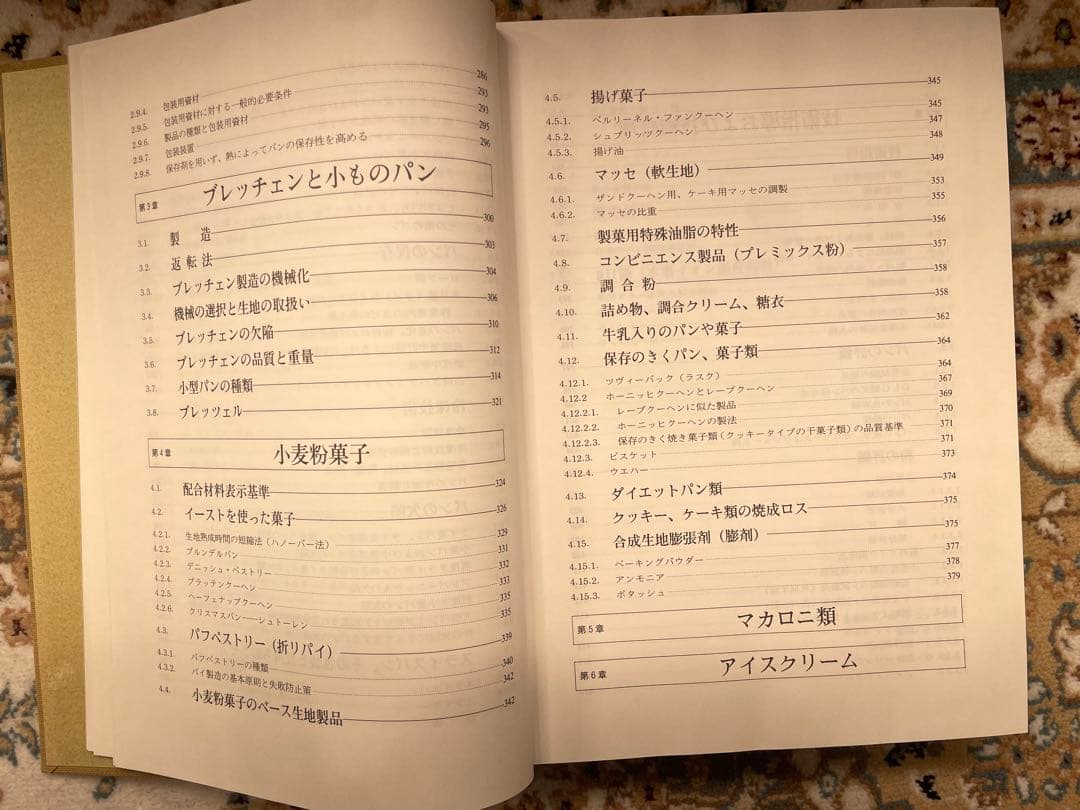 2.9.4. 包装用資材 286
2.9.5. 包装用資材に対する一般的必要条件 293
2.9.6. 製品の種類と包装用資材 293
2.9.7. 包装装置 295
2.9.8. 保存剤を用いず、熱によってパンの保存性を高める 296
第3章 ブレッチェンと小ものパン
3.1. 製造 300
3.2. 返転法 303
3.3. ブレッチェン製造の機械化 304
3.4. 機械の選択と生地の取扱い 306
3.5. ブレッチェンの欠陥 310
3.6. ブレッチェンの品質と重量 312
3.7. 小型パンの種類 314
3.8. ブレッツェル 321
第4章 小麦粉菓子
4.1. 配合材料表示基準 324
4.2. イーストを使った菓子 326
4.2.1. 生地熟成時間の短縮法（ハノーバー法） 329
4.2.2. ブルンデルパン 331
4.2.3. デニッシュ・ペストリー 332
4.2.4. プラッテンクーヘン 333
4.2.5. ヘーフェナップクーヘン 335
4.2.6. クリスマスパン──シュトーレン 335
4.3. パフペストリー（折りパイ） 339
4.3.1. パフペストリーの種類 340
4.3.2. パイ製造の基本原則と失敗防止策 342
4.4. 小麦粉菓子のベース生地製品 342
4.5. 揚げ菓子 345
4.5.1. ベルリーネル・ファンクーヘン 345
4.5.2. シュプリッツクーヘン 347
4.5.3. 揚げ油 348
4.6. マッセ（軟生地） 349
4.6.1. ザンドクーヘン用、ケーキ用マッセの調製 353
4.6.2. マッセの比重 355
4.7. 製菓用特殊油脂の特性 356
4.8. コンビニエンス製品（プレミックス粉） 357
4.9. 調合粉 358
4.10. 詰め物、調合クリーム、糖衣 358
4.11. 牛乳入りのパンや菓子 362
4.12. 保存のきくパン、菓子類 364
4.12.1. ツヴィーバック（ラスク） 364
4.12.2 ホーニッヒクーヘンとレープクーヘン 367
4.12.2.1. レープクーヘンに似た製品 369
4.12.2.2. ホーニッヒクーヘンの製法 370
4.12.2.3. 保存のきく焼き菓子類（クッキータイプの干菓子類）の品質基準 371
4.12.3. ビスケット 371
4.12.4. ウエハー 373
4.13. ダイエットパン類 374
4.14. クッキー、ケーキ類の焼成ロス 375
4.15. 合成生地膨張剤（膨剤） 375
4.15.1. ベーキングパウダー 377
4.15.2. アンモニア 378
4.15.3. ポタッシュ 379
第5章 マカロニ類
第6章 アイスクリーム